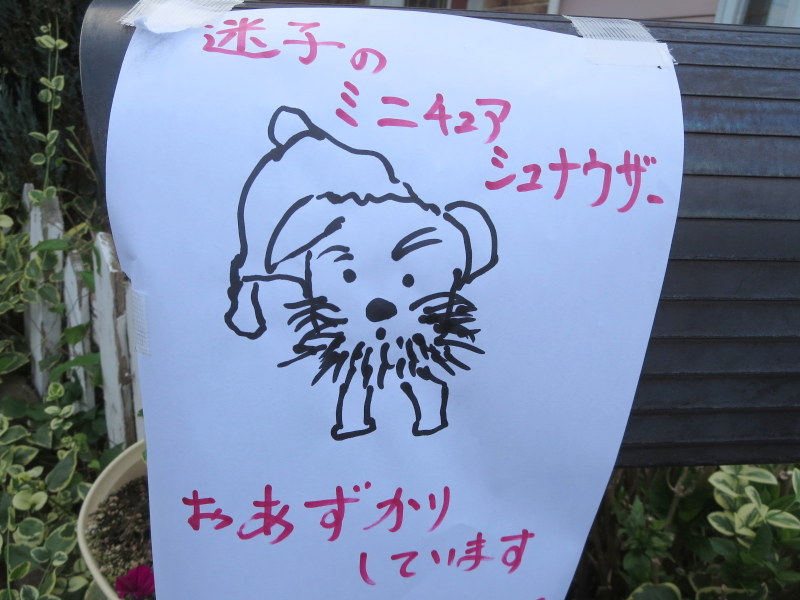 迷子の
ミニチュア
シュナウザー
おあずかり
しています